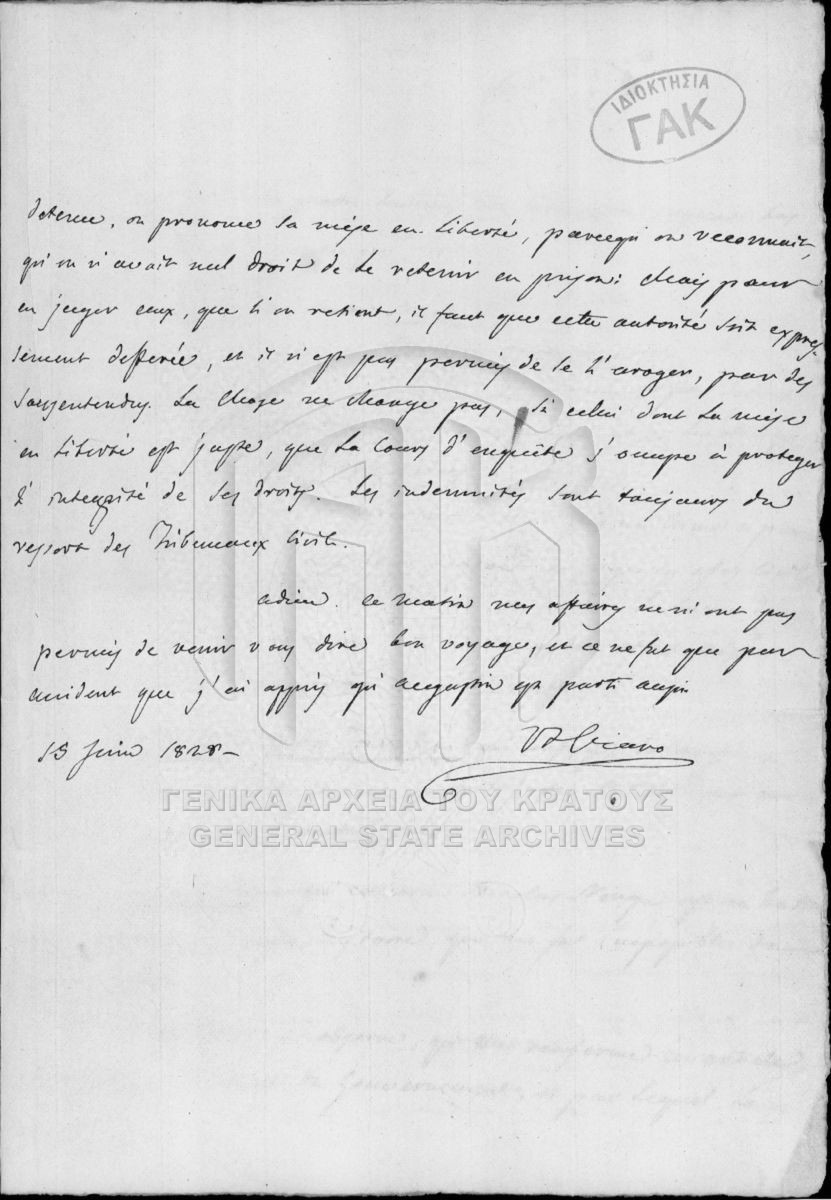 ΙΔΙΟΚΤΗΣΙΑ
ΓΑΚ
detenu, on prononce sa mise en liberté, parcequ'on reconnait,
qu'on n'avait nul droit de le retenir en prison: Mais pour
en juger ceux, que l'on retient, il faut que cette autorité soit expres-
sement defferée, et il n'est pas permis de se l'aroger, par des
sousentendus. La chose ne change pas, si celui dont la mise
en liberté est juste, que la Cour d'enquête s'occupe à proteger
l'integrité de ses droits. Les indemnités sont toujours du
ressort des Tribunaux Civils.
adieu. Ce matin mes affaires ne m'ont pas
permis de venir vous dire bon voyage, et ce ne fut que par
accident que j'ai appris qu'Augustin est parti aussi
15 Juin 1828–
Viaro
ΓΕΝΙΚΑ ΑΡΧΕΙΑ ΤΟΥ ΚΡΑΤΟΥΣ
GENERAL STATE ARCHIVES